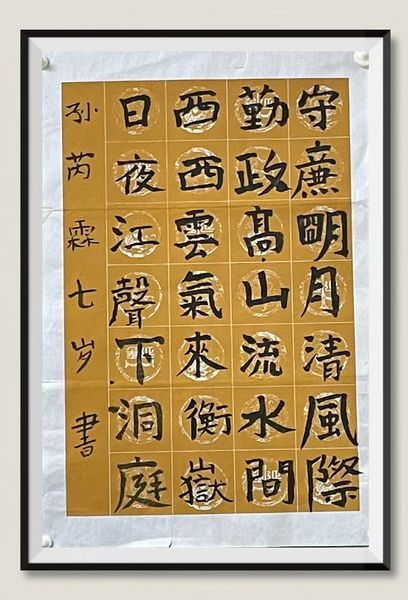 守廉明月清風際
勤政高山流水間
西西雲氣來衡嶽
日夜江聲下洞庭
孙芮霖七岁書